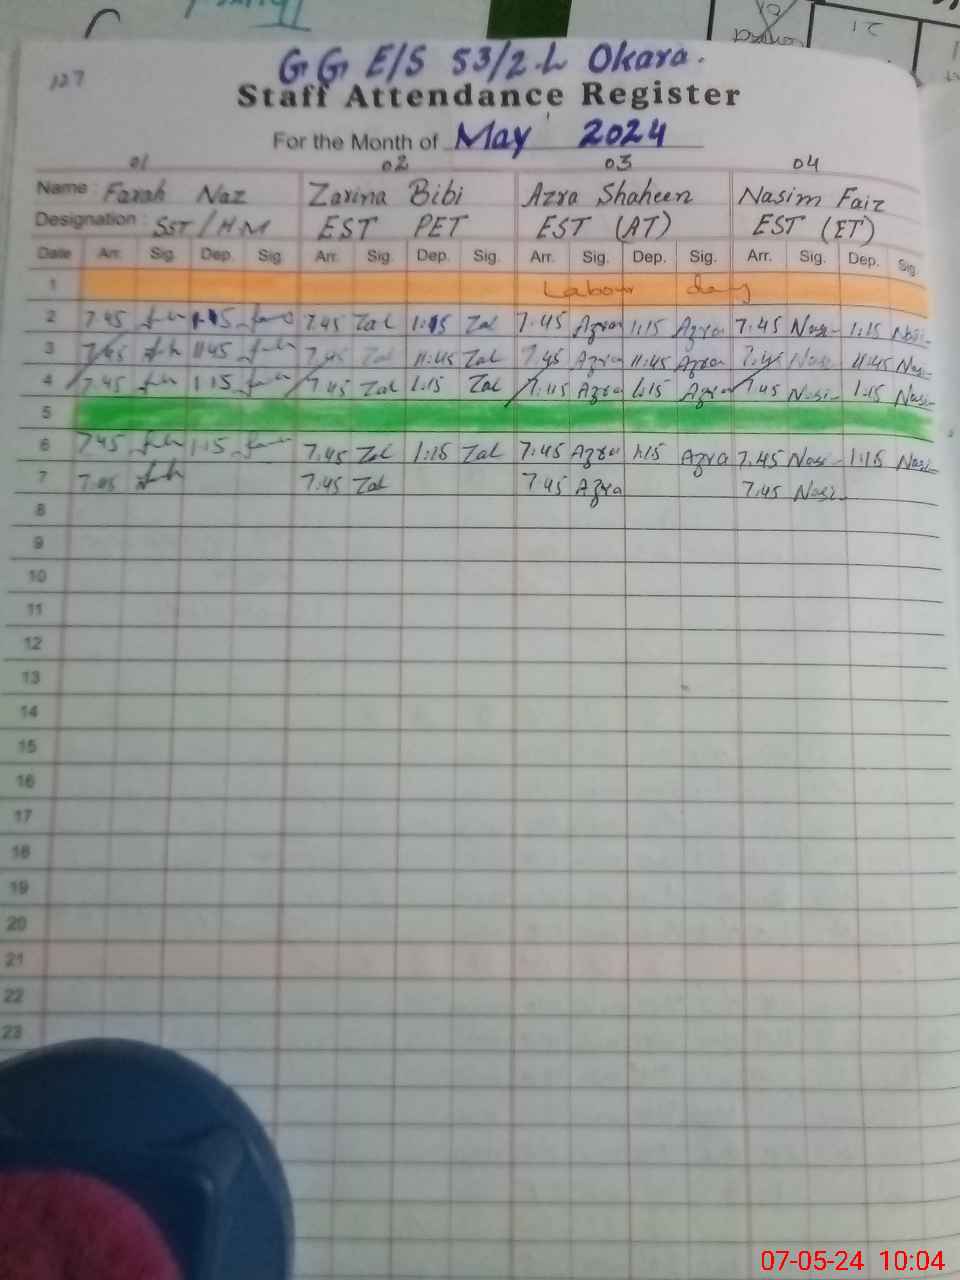 127
GG E/S 53/2.L Okara.
Staff Attendance Register
For the Month of May 2024
01 02 03 04
Name : Farah Naz Zarina Bibi Azra Shaheen Nasim Faiz
Designation : SST/H.M EST PET EST (AT) EST (ET)
Date Arr. Sig. Dep. Sig. Arr. Sig. Dep. Sig. Arr. Sig. Dep. Sig. Arr. Sig. Dep. Sig.
1 Labour day
2 7.45 1:15 7.45 Zal 1:15 Zal 7:45 Azra 1:15 Azra 7.45 Nasi 1:15 Nasi
3 7.45 11:45 7.45 Zal 11:45 Zal 7.45 Azra 11:45 Azra 7.45 Nasi 11:45 Nasi
4 7.45 1:15 7.45 Zal 1:15 Zal Azra 1:15 Azra 7.45 Nasi 1:15 Nasi
5
6 7.45 1:15 7.45 Zal 1:15 Zal 7.45 Azra 1:15 Azra 7.45 Nasi 1:15 Nasi
7 7.45 7.45 Zal 7.45 Azra 7.45 Nasi
8
9
10
11
12
13
14
15
16
17
18
19
20
21
22
23
07-05-24 10:04